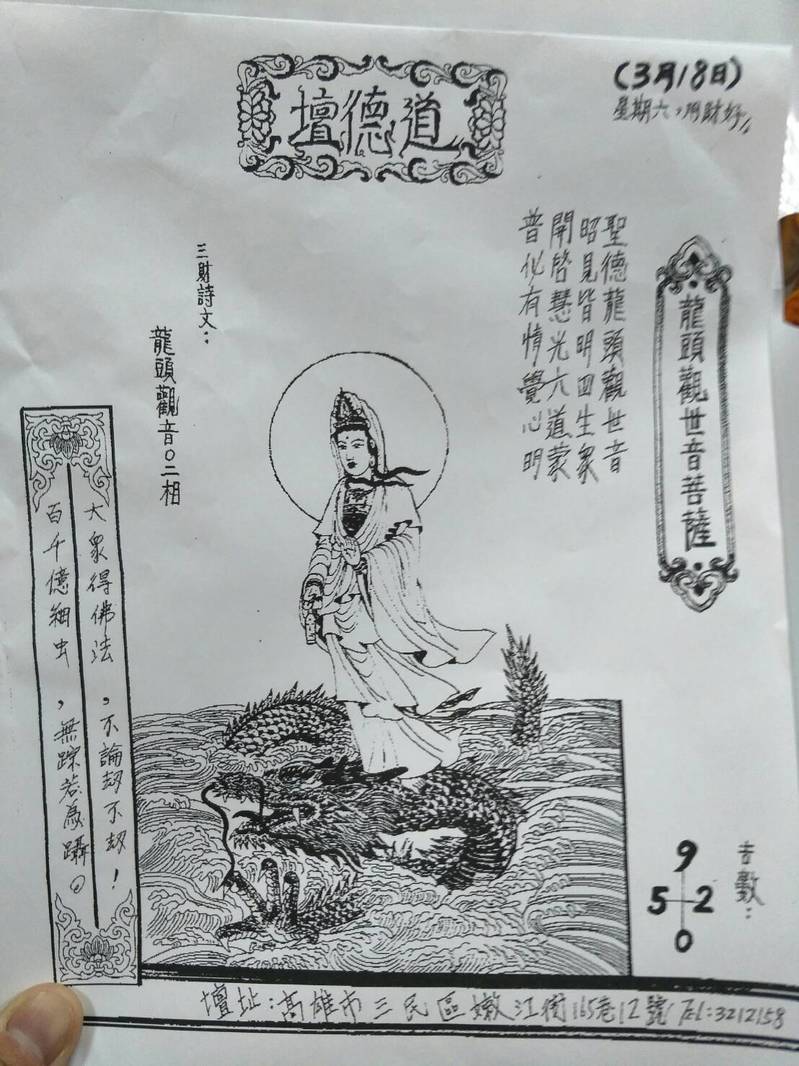 道德壇
(3月18日)
星期六，用財好
龍頭觀世音菩薩
聖德龍頭觀世音
昭見皆明四生眾
開啓慧光六道蒙
普化有情覺心明
三財詩文：
龍頭觀音0二相
大眾得佛法，不論劫不劫！
百千億細虫，無踪若為躡。
吉數：
9
5 2
0
壇址：高雄市三民區嫩江街165巷12號 Tel:3212158